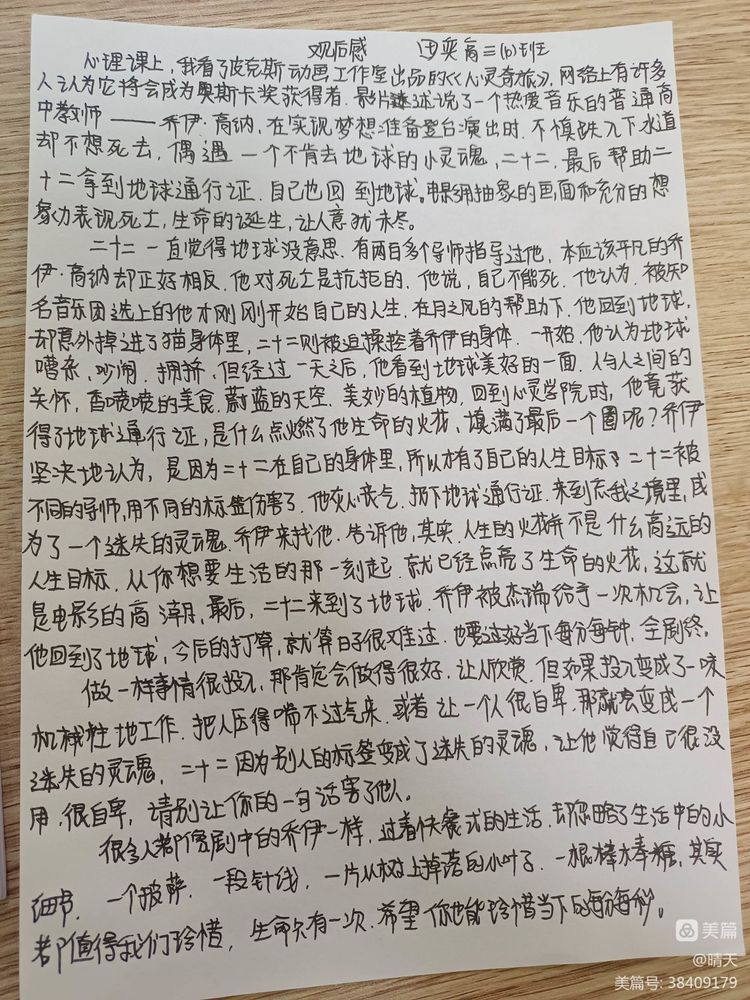 观后感 田奕商三(6)班
心理课上，我看了皮克斯动画工作室出品的《心灵奇旅》，网络上有许多
人认为它将会成为奥斯卡奖获得者．影片讲述说了一个热爱音乐的普通高
中教师——乔伊·高纳，在实现梦想：准备登台演出时，不慎跌入下水道
却不想死去，偶遇一个不肯去地球的小灵魂，二十二，最后帮助二
十二拿到地球通行证．自己也回到地球。电影用抽象的画面和充分的想
象力表现死亡，生命的诞生，让人意犹未尽。
二十二一直觉得地球没意思．有两百多个导师指导过他，本应该平凡的乔
伊·高纳却正好相反．他对死亡是抗拒的，他说，自己不能死．他认为，被知
名音乐团选上的他才刚刚开始自己的人生．在月之风的帮助下，他回到地球，
却意外掉进了猫身体里，二十二则被迫操控着乔伊的身体．一开始，他认为地球
嘈杂，吵闹，拥挤，但经过一天之后，他看到地球美好的一面．人与人之间的
关怀，香喷喷的美食．蔚蓝的天空．美妙的植物．回到心灵学院时，他竟获
得了地球通行证，是什么点燃了他生命的火花，填满了最后一个圈呢？乔伊
坚决地认为，是因为二十二在自己的身体里，所以才有了自己的人生目标，二十二被
不同的导师，用不同的标签伤害了．他灰心丧气．扔下地球通行证．来到忘我之境里，成
为了一个迷失的灵魂．乔伊来找他．告诉他，其实．人生的火花并不是什么高远的
人生目标．从你想要生活的那一刻起．就已经点亮了生命的火花，这就
是电影的高潮．最后，二十二来到了地球．乔伊被杰瑞给予一次机会，让
他回到了地球，今后的打算，就算日子很难过．也要过好当下每分每钟，全剧终。
做一样事情很投入，那肯定会做得很好．让人欣赏．但如果投入变成了一味
机械性地工作．把人压得喘不过气来．或者让一个人很自卑．那就会变成一个
迷失的灵魂，二十二因为别人的标签变成了迷失的灵魂，让他觉得自己很没
用，很自卑，请别让你的一句话害了他人。
很多人都像剧中的乔伊一样，过着快餐式的生活．却忽略了生活中的小
细节．一个披萨．一段针线，一片从树上掉落的小叶子．一根棒棒糖，其实
都值得我们珍惜，生命只有一次．希望你也能珍惜当下的每分每秒。
美篇
@晴天
美篇号: 38409179